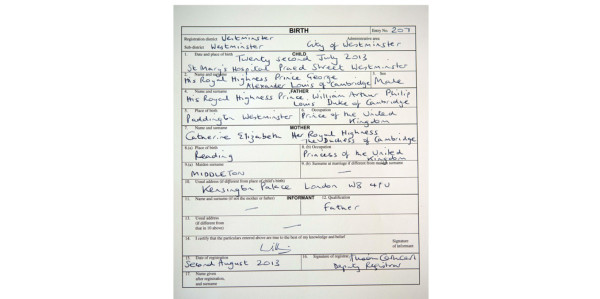 BIRTH
Entry No. 207
Registration district Westminster Administrative area
Sub-district Westminster City of Westminster
1. Date and place of birth CHILD
Twenty second July 2013
St Mary's Hospital Praed Street Westminster
2. Name and surname 3. Sex
His Royal Highness Prince George
Alexander Louis of Cambridge Male
4. Name and surname FATHER
His Royal Highness Prince William Arthur Philip
Louis Duke of Cambridge
5. Place of birth 6. Occupation
Paddington Westminster Prince of the United
Kingdom
7. Name and surname MOTHER
Catherine Elizabeth Her Royal Highness
the Duchess of Cambridge
8.(a) Place of birth 8.(b) Occupation
Reading Princess of the United
Kingdom
9.(a) Maiden surname 9.(b) Surname at marriage if different from maiden surname
MIDDLETON —
10. Usual address (if different from place of child's birth)
Kensington Palace London W8 4PU
11. Name and surname (if not the mother or father) INFORMANT 12. Qualification
— Father
13. Usual address
(if different from
that in 10 above) —
14. I certify that the particulars entered above are true to the best of my knowledge and belief
Signature
of informant
15. Date of registration 16. Signature of registrar
Second August 2013 Deputy Registrar
17. Name given
after registration,
and surname